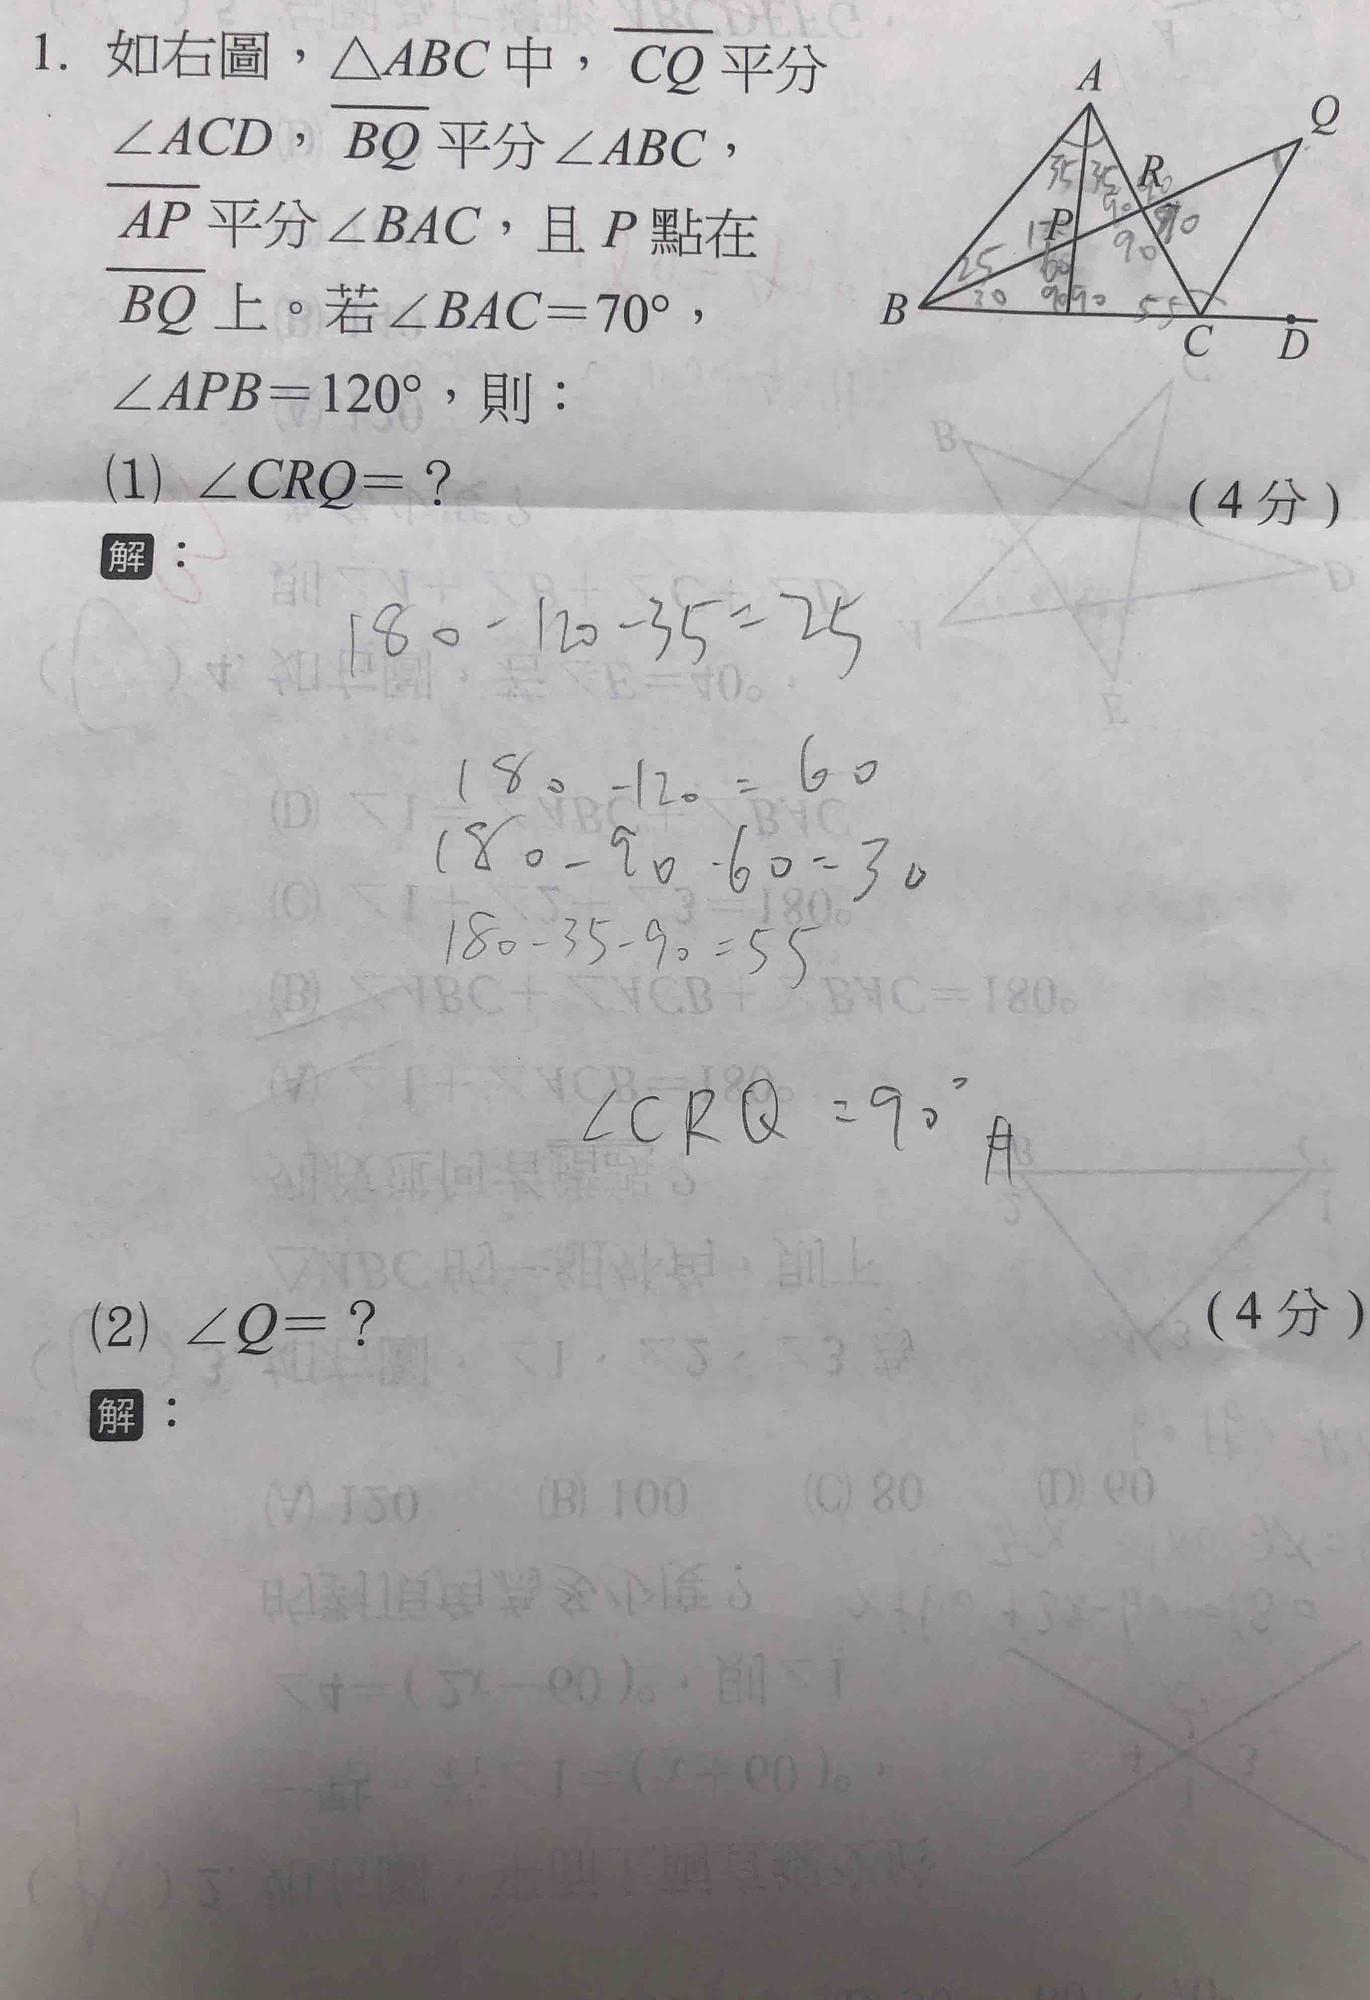 1. 如右圖，△ABC 中，CQ 平分
∠ACD，BQ 平分∠ABC，
AP 平分∠BAC，且 P 點在
BQ 上。若∠BAC＝70°，
∠APB＝120°，則：
A
Q
35
35
R
90
90
90
90
P
25
30
60
90
90
55
B
C
D
(1) ∠CRQ＝？
(4分)
解：
180-120-35=25
180-120=60
180-90-60=30
180-35-90=55
∠CRQ=90° A
(2) ∠Q＝？
(4分)
解：